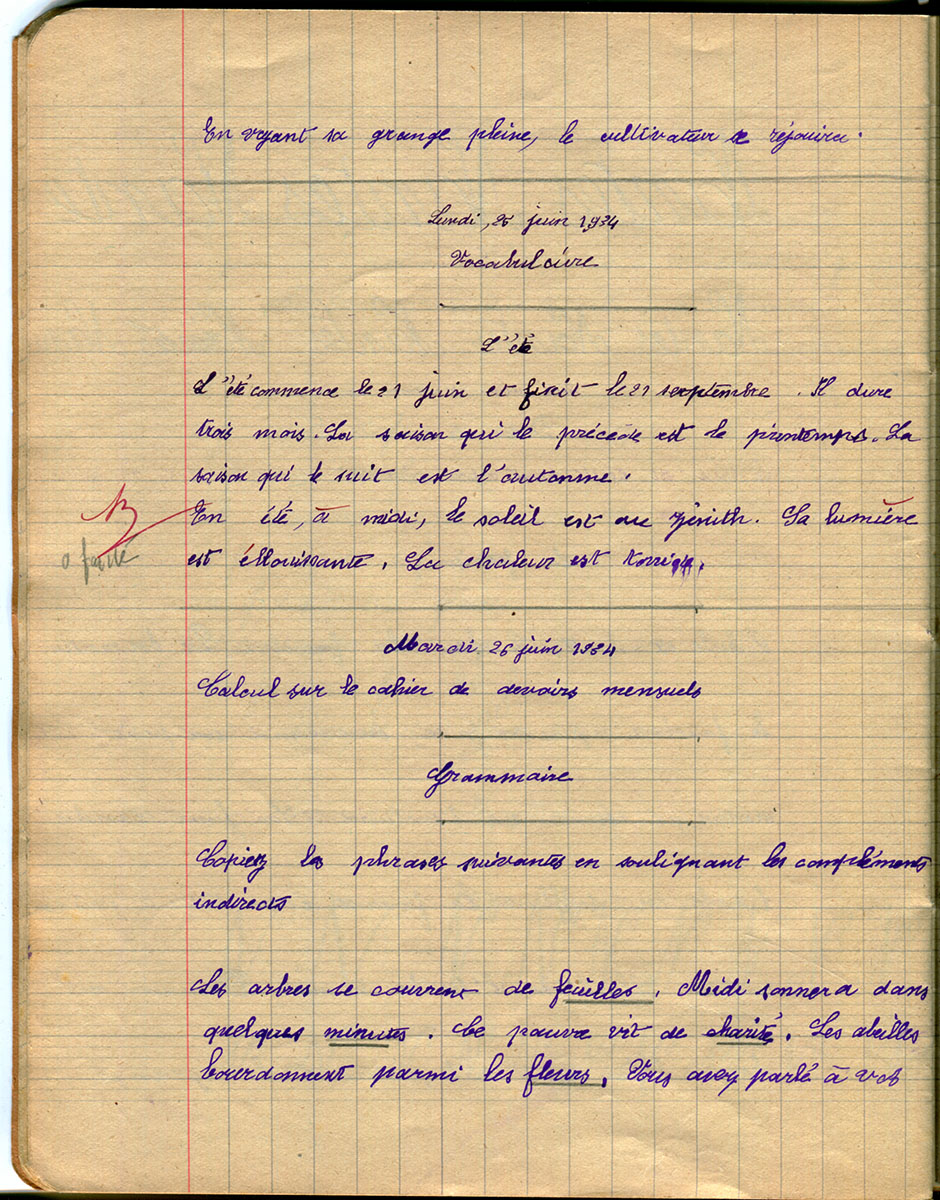 En voyant sa grange pleine, le cultivateur se réjouira.
Lundi, 25 juin 1934
Vocabulaire
L'été
L'été commence le 21 juin et finit le 21 septembre. Il dure
trois mois. La saison qui le précède est le printemps. La
saison qui le suit est l'automne.
En été, à midi, le soleil est au zénith. Sa lumière
est éblouissante. La chaleur est torride.
Mardi 26 juin 1934
Calcul sur le cahier de devoirs mensuels
Grammaire
Copiez les phrases suivantes en soulignant les compléments
indirects
Les arbres se couvrent de feuilles. Midi sonnera dans
quelques minutes. Le pauvre vit de charité. Les abeilles
bourdonnent parmi les fleurs. Vous avez parlé à vos